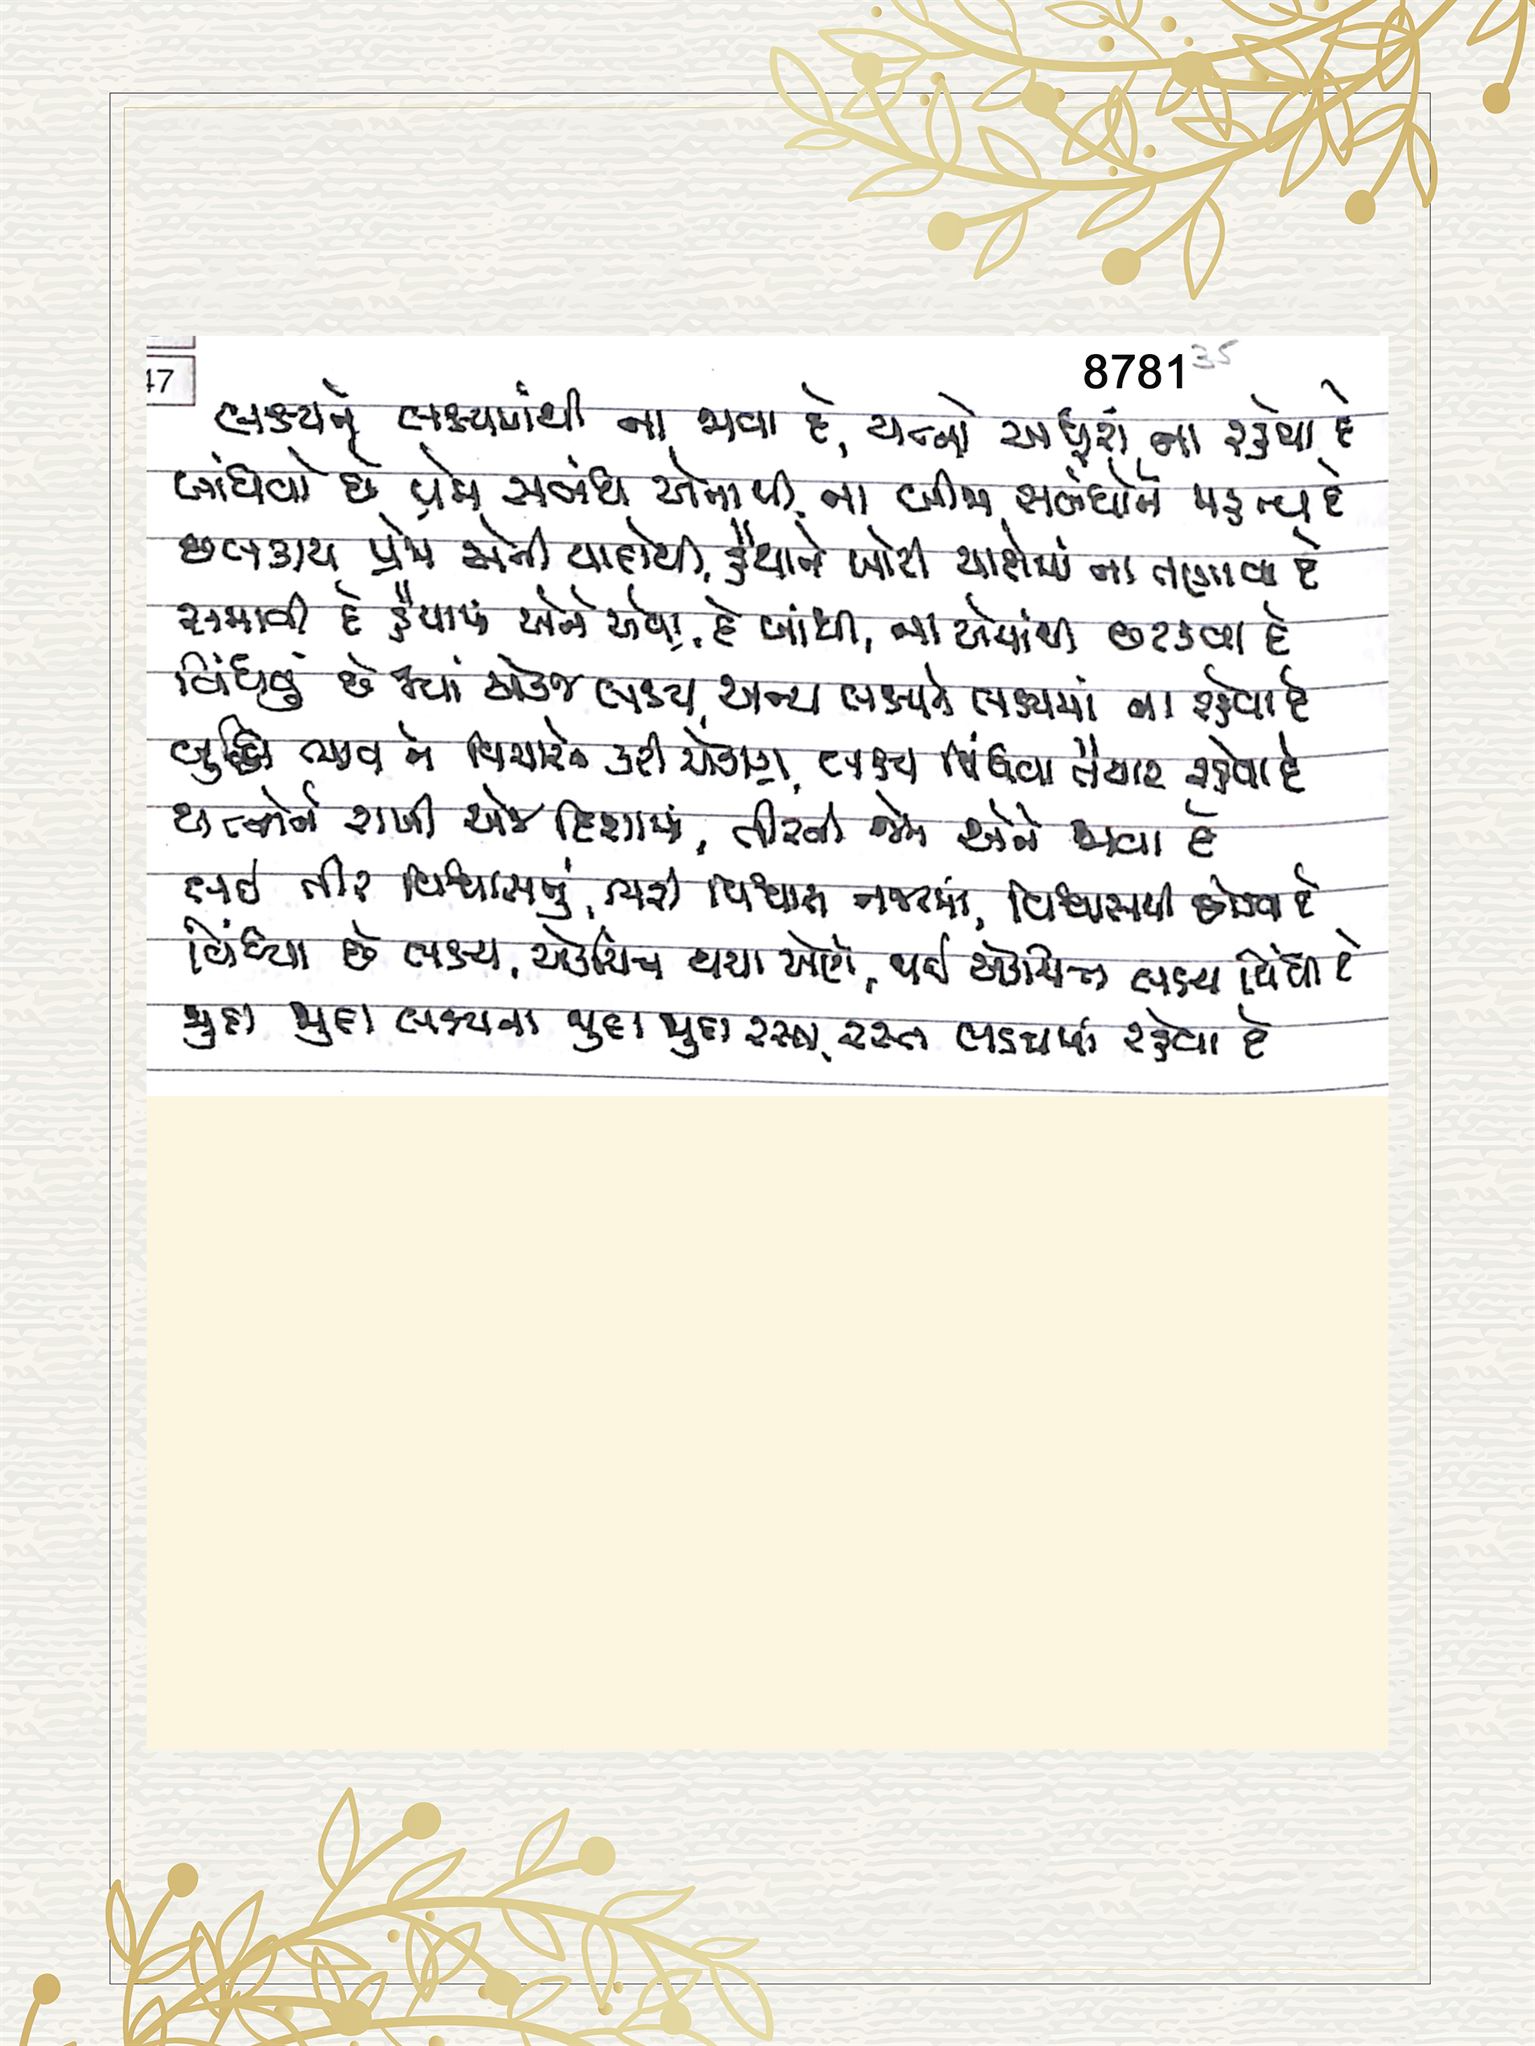 47
8781
35
લક્ષ્યને લક્ષ્યમાંથી ના જવા દે, યત્નો અધૂરાં ના રહેવા દે
બાંધવો છે પ્રેમ સબંધ એનાથી, ના બીજા સબંધોને મહત્વ દે
છલકાય પ્રેમ એની યાદોથી, હૈયાને ખોટી યાદોમાં ના તણાવા દે
સમાવી દે હૈયામાં એને એવા, દે બાંધી, ના એમાંથી છટકવા દે
વિંધવું છે જ્યાં એકજ લક્ષ્ય, અન્ય લક્ષ્યને લક્ષ્યમાં ના રહેવા દે
બુદ્ધિ ભાવ ને વિચારને કરી એકાગ્ર, લક્ષ્ય વિંધવા તૈયાર રહેવા દે
યત્નોને રાખી એજ દિશામાં, તીરની જેમ એને જવા દે
લઇ તીર વિશ્વાસનું, ભરી વિશ્વાસ નજરમાં, વિશ્વાસથી છોડવા દે
વિંધ્યા છે લક્ષ્ય, એકચિત્ત થયા એણે, થઈ એકચિત્ત લક્ષ્ય વિંધવા દે
જુદા જુદા લક્ષ્યના જુદા જુદા રસ્તા, રસ્તા લક્ષ્યમાં રહેવા દે